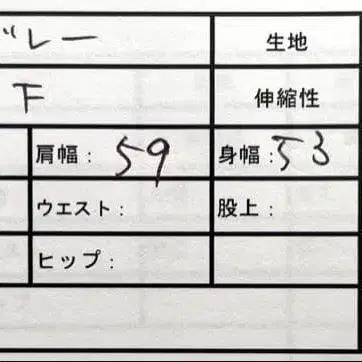 グレー 生地
F 伸縮性
肩幅：59 身幅：53
ウエスト： 股上：
ヒップ：